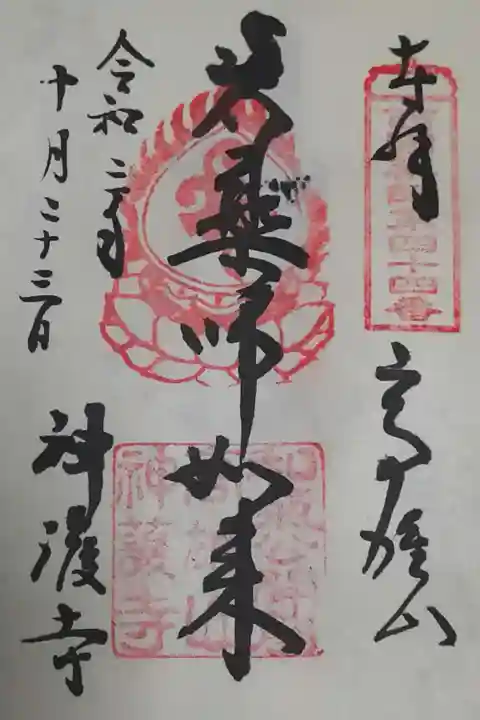 奉拝
四十四番
高雄山
薬師如来
令和
十月二十三日
神護寺
神護寺